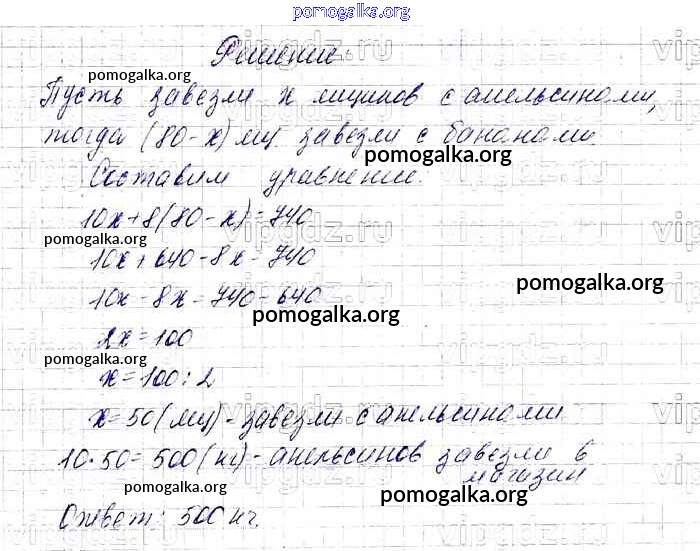 pomogalka.org
Решение.
pomogalka.org
Пусть завезли x ящиков с апельсинами,
тогда (80 - x) ящ завезли с бананами.
pomogalka.org
Составим уравнение.
10x + 8(80 - x) = 740
pomogalka.org
10x + 640 - 8x = 740
pomogalka.org
10x - 8x = 740 - 640
pomogalka.org
2x = 100
pomogalka.org
x = 100 : 2
x = 50 (ящ) - завезли с апельсинами
10 · 50 = 500 (кг) - апельсинов завезли в
магазин
pomogalka.org
pomogalka.org
Ответ: 500 кг.
vipgdz.ru